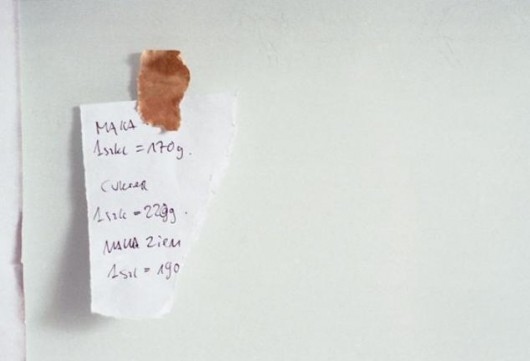 MĄKA
1szkl = 170g.
CUKIER
1szk = 220g.
MĄKA ZIEM
1szl = 190